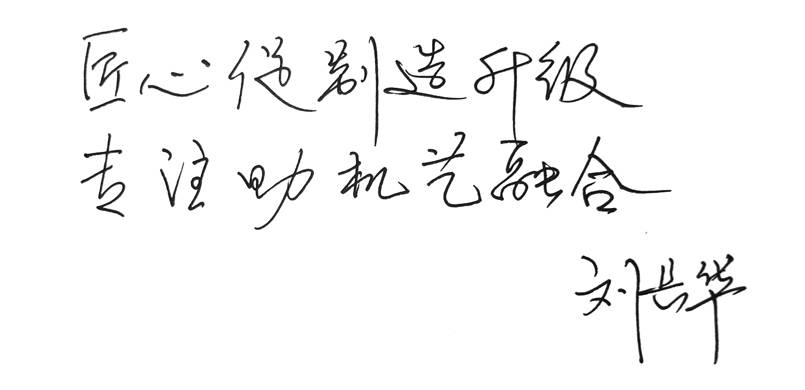 匠心促制造升级
专注助机艺融合
刘长华